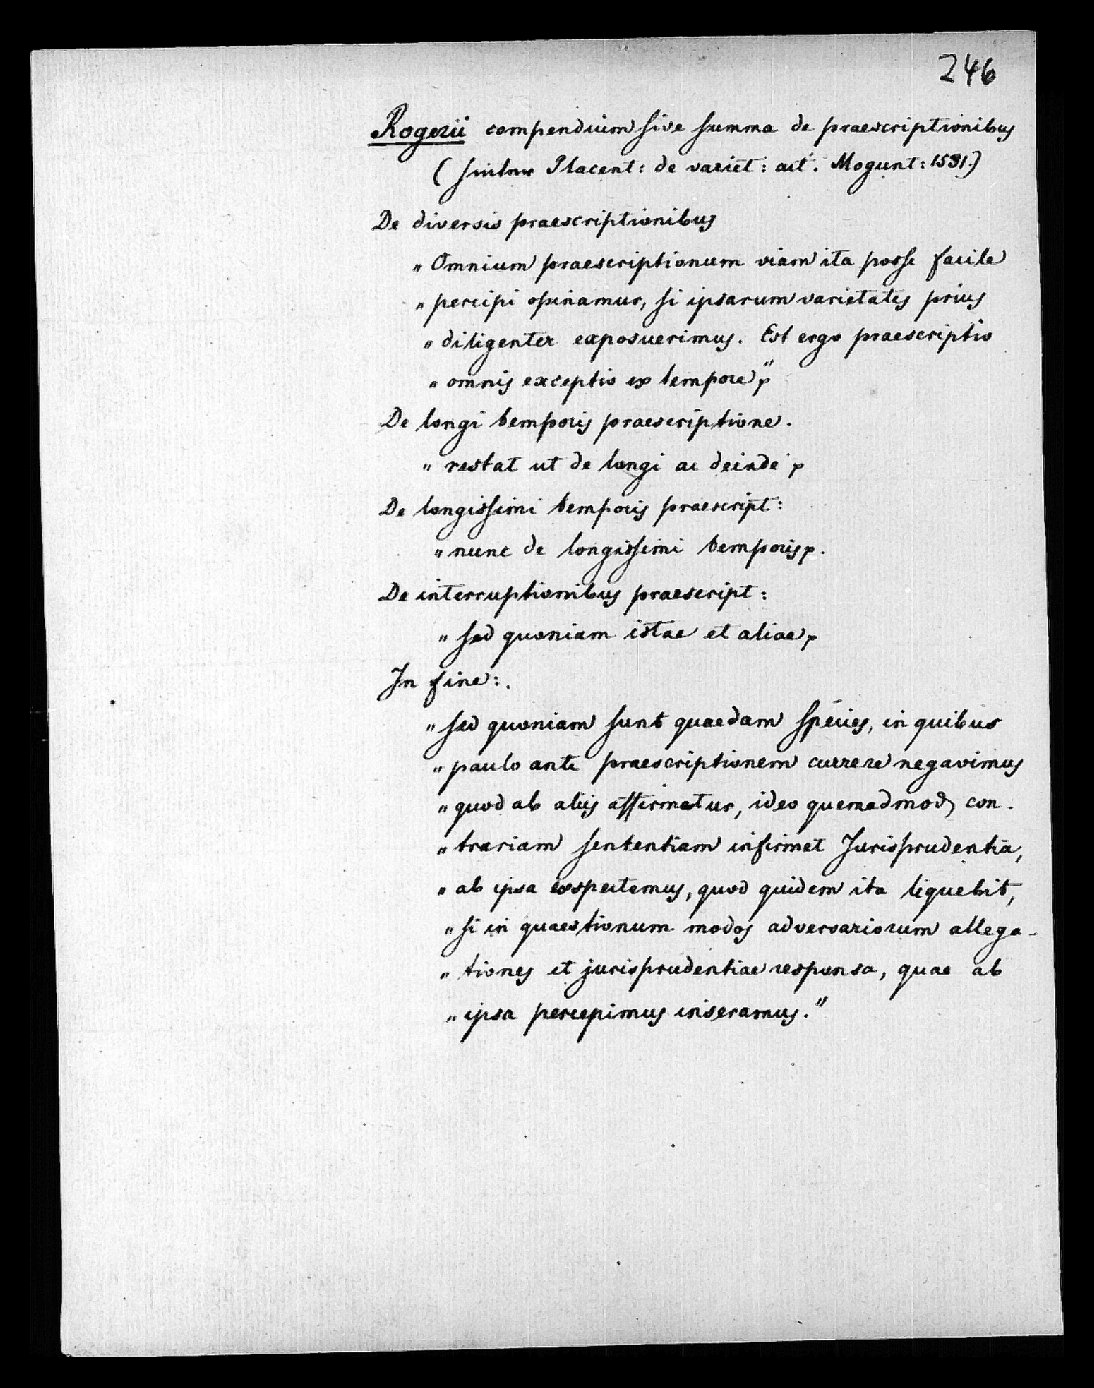 246
Rogerii compendium sive summa de praescriptionibus
(hinter Placent: de variet: act: Mogunt: 1531.)
De diversis praescriptionibus
„ Omnium praescriptionum viam ita posse facile
„ percipi opinamur, si ipsarum varietates prius
„ diligenter exposuerimus. Est ergo praescriptio
„ omnis exceptio ex tempore"
De longi temporis praescriptione.
„ restat ut de longi ac deinde
De longissimi temporis praescript:
„ nunc de longissimi temporis
De interruptionibus praescript:
„ sed quoniam istae et aliae
In fine:.
„ sed quoniam sunt quaedam species, in quibus
„ paulo ante praescriptionem currere negavimus
„ quod ab aliis affirmatur, ideo quemadmod con-
„ trariam sententiam infirmet Jurisprudentia,
„ ab ipsa exspectemus, quod quidem ita liquebit,
„ si in quaestionum modos adversariorum allega-
„ tiones et jurisprudentiae responsa, quae ab
„ ipsa percepimus inseramus."